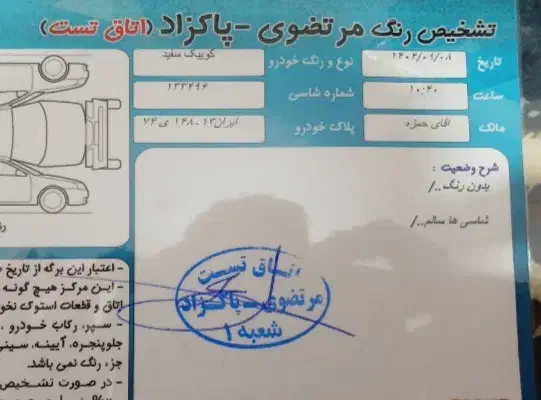 تشخیص رنگ مرتضوی - پاکزاد (اتاق تست)
تاریخ ۱۴۰۲/۰۹/۰۸ نوع و رنگ خودرو کوییک سفید
ساعت ۱۰:۴۰ شماره شاسی ۱۳۳۴۹۶
مالک آقای حمزه پلاک خودرو
شرح وضعیت :
بدون رنگ../
شاسی ها سالم../
اتاق تست
مرتضوی - پاکزاد
شعبه ۱
- اعتبار این برگه از تاریخ
- این مرکز هیچ گونه
اتاق و قطعات استوک نخو
- سپر، رکاب خودرو ،
جلوپنجره، آیینه، سینی
جزء رنگ نمی باشد.
- در صورت تشخیص